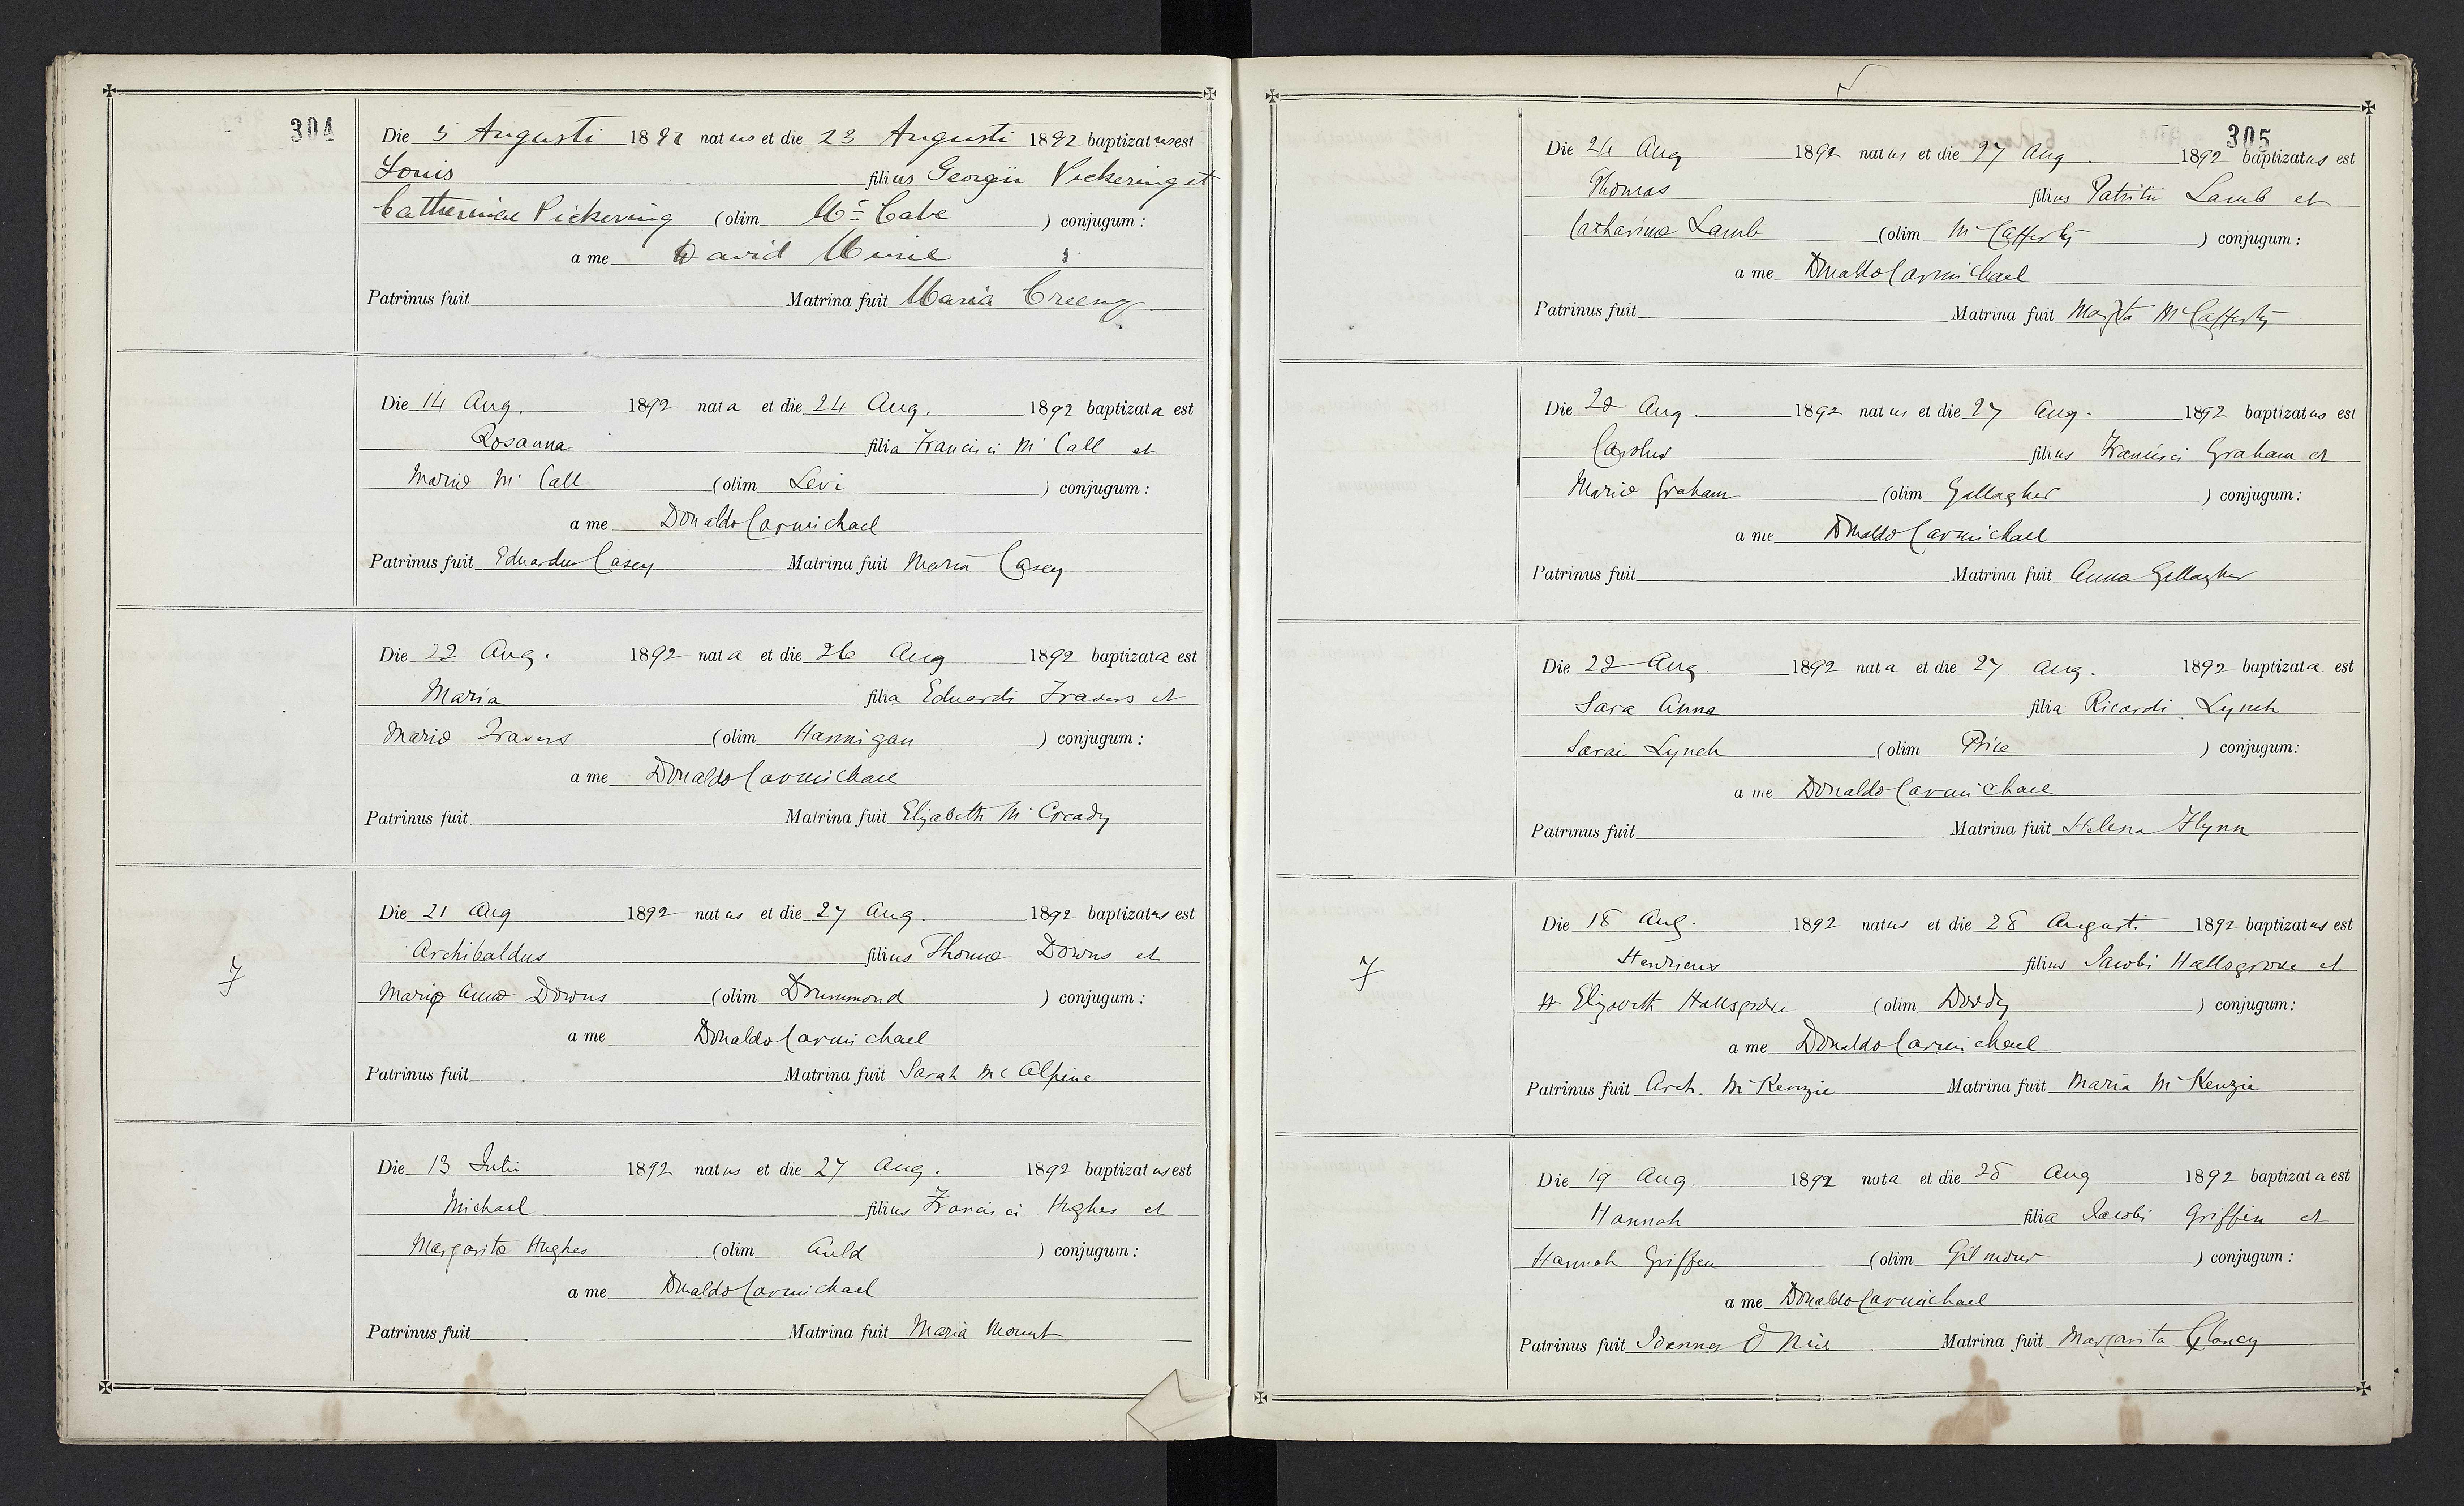 304
Die 5 Augusti 1892 natus et die 23 Augusti 1892 baptizatus est
Louis filius Georgii Pickering et
Catherinae Pickering (olim McCabe) conjugum:
a me David
Patrinus fuit Matrina fuit Maria Creeny
Die 14 Aug. 1892 nata et die 24 Aug. 1892 baptizata est
Rosanna filia Francisci McCall et
Mariae McCall (olim Levi) conjugum:
a me Donaldo Carmichael
Patrinus fuit Eduardus Casey Matrina fuit Maria Casey
Die 22 Aug. 1892 nata et die 26 Aug 1892 baptizata est
Maria filia Eduardi Travers et
Mariae Travers (olim Hannigan) conjugum:
a me Donaldo Carmichael
Patrinus fuit Matrina fuit Elizabeth McCready
Die 21 Aug 1892 natus et die 27 Aug. 1892 baptizatus est
Archibaldus filius Thomae Downs et
Mariae Annae Downs (olim Drummond) conjugum:
a me Donaldo Carmichael
Patrinus fuit Matrina fuit Sarah McAlpine
Die 13 Julii 1892 natus et die 27 Aug. 1892 baptizatus est
Michael filius Francisci Hughes et
Margaritae Hughes (olim Auld) conjugum:
a me Donaldo Carmichael
Patrinus fuit Matrina fuit Maria Mount
305
Die 24 Aug 1892 natus et die 27 Aug. 1892 baptizatus est
Thomas filius Patritii Lamb et
Catharinae Lamb (olim McCafferty) conjugum:
a me Donaldo Carmichael
Patrinus fuit Matrina fuit Margta McCafferty
Die 22 Aug. 1892 natus et die 27 Aug. 1892 baptizatus est
Carolus filius Francisci Graham et
Mariae Graham (olim Gallagher) conjugum:
a me Donaldo Carmichael
Patrinus fuit Matrina fuit Anna Gallagher
Die 22 Aug. 1892 nata et die 27 Aug. 1892 baptizata est
Sara Anna filia Ricardi Lynch
Sarai Lynch (olim Price) conjugum:
a me Donaldo Carmichael
Patrinus fuit Matrina fuit Helena Flynn
Die 18 Aug. 1892 natus et die 28 Augusti 1892 baptizatus est
Henricus filius Jacobi Hallsgrove et
Elizabeth Hallsgrove (olim Doody) conjugum:
a me Donaldo Carmichael
Patrinus fuit Arch. McKenzie Matrina fuit Maria McKenzie
Die 19 Aug. 1892 nata et die 28 Aug 1892 baptizata est
Hannah filia Jacobi Griffin et
Hannah Griffen (olim Gilmour) conjugum:
a me Donaldo Carmichael
Patrinus fuit Joannes O'Neil Matrina fuit Margarita Clancy